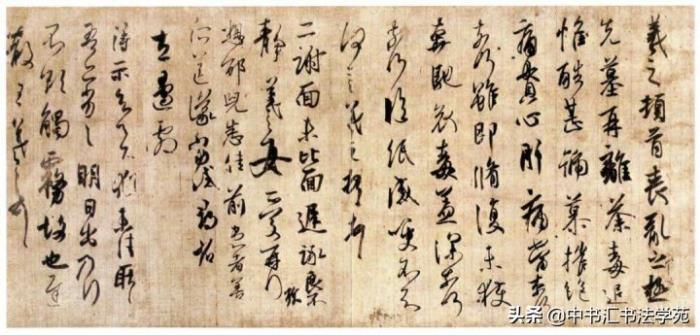 羲之頓首喪亂之極
先墓再離荼毒追
惟酷甚號慕摧絕
痛貫心肝痛當奈何
奈何雖即脩復未獲
奔馳哀毒益深奈何
奈何臨紙感哽不知
何言羲之頓首頓首
二謝面未比面遲詠良不
靜羲之女愛再拜
想邰兒悉佳前患者善
所送議當試尋省
左邊劇
得示知足下猶未佳耿耿
吾亦劣劣明日出乃行
不欲觸霧故也遲
散王羲之頓首
头条 @中书汇书法学苑